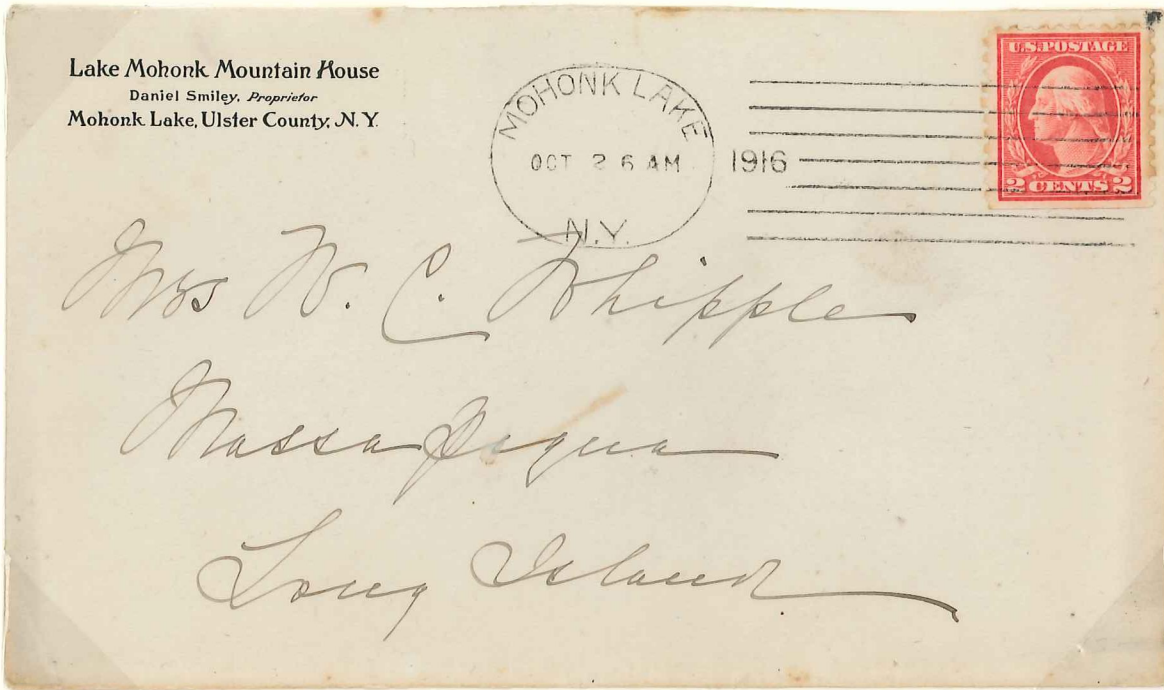 Lake Mohonk Mountain House
Daniel Smiley, Proprietor
Mohonk Lake, Ulster County, N.Y.
MOHONK LAKE
OCT 2 6 AM
1916
N.Y.
U.S. POSTAGE
2 CENTS 2
Mrs W. C. Whipple
Massapequa
Long Island